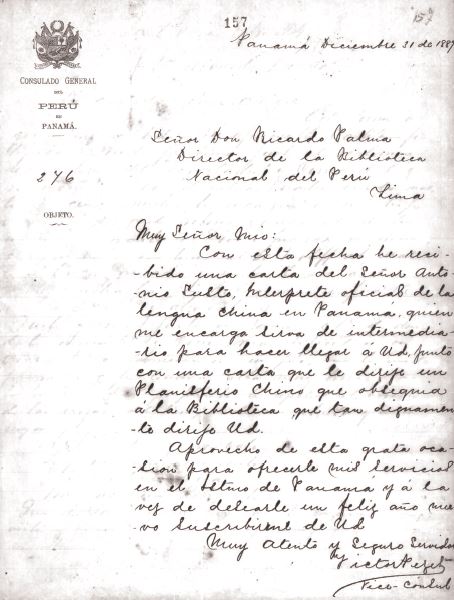 157
157
Panamá Diciembre 31 de 1889
CONSULADO GENERAL
DEL
PERÚ
EN
PANAMÁ.
276
OBJETO.
Señor Don Ricardo Palma
Director de la Biblioteca
Nacional del Perú
Lima
Muy Señor Mio:
Con esta fecha he reci-
-bido una carta del Señor Anto-
-nio Susto, Interprete oficial de la
lengua China en Panama, quien
me encarga sirva de intermedia-
-rio para hacer llegar á Ud, junto
con una carta que le dirije un
Planisferio Chino que obsequia
á la Biblioteca que tan dignamen-
-te dirije Ud.
Aprovecho de esta grata oca-
-sion para ofrecerle mis servicios
en el Istmo de Panamá y á la
vez de desearle un feliz año nue-
-vo Suscribirme de Ud.
Muy Atento y Seguro Servidor
Victor Pezet
Vice-Consul